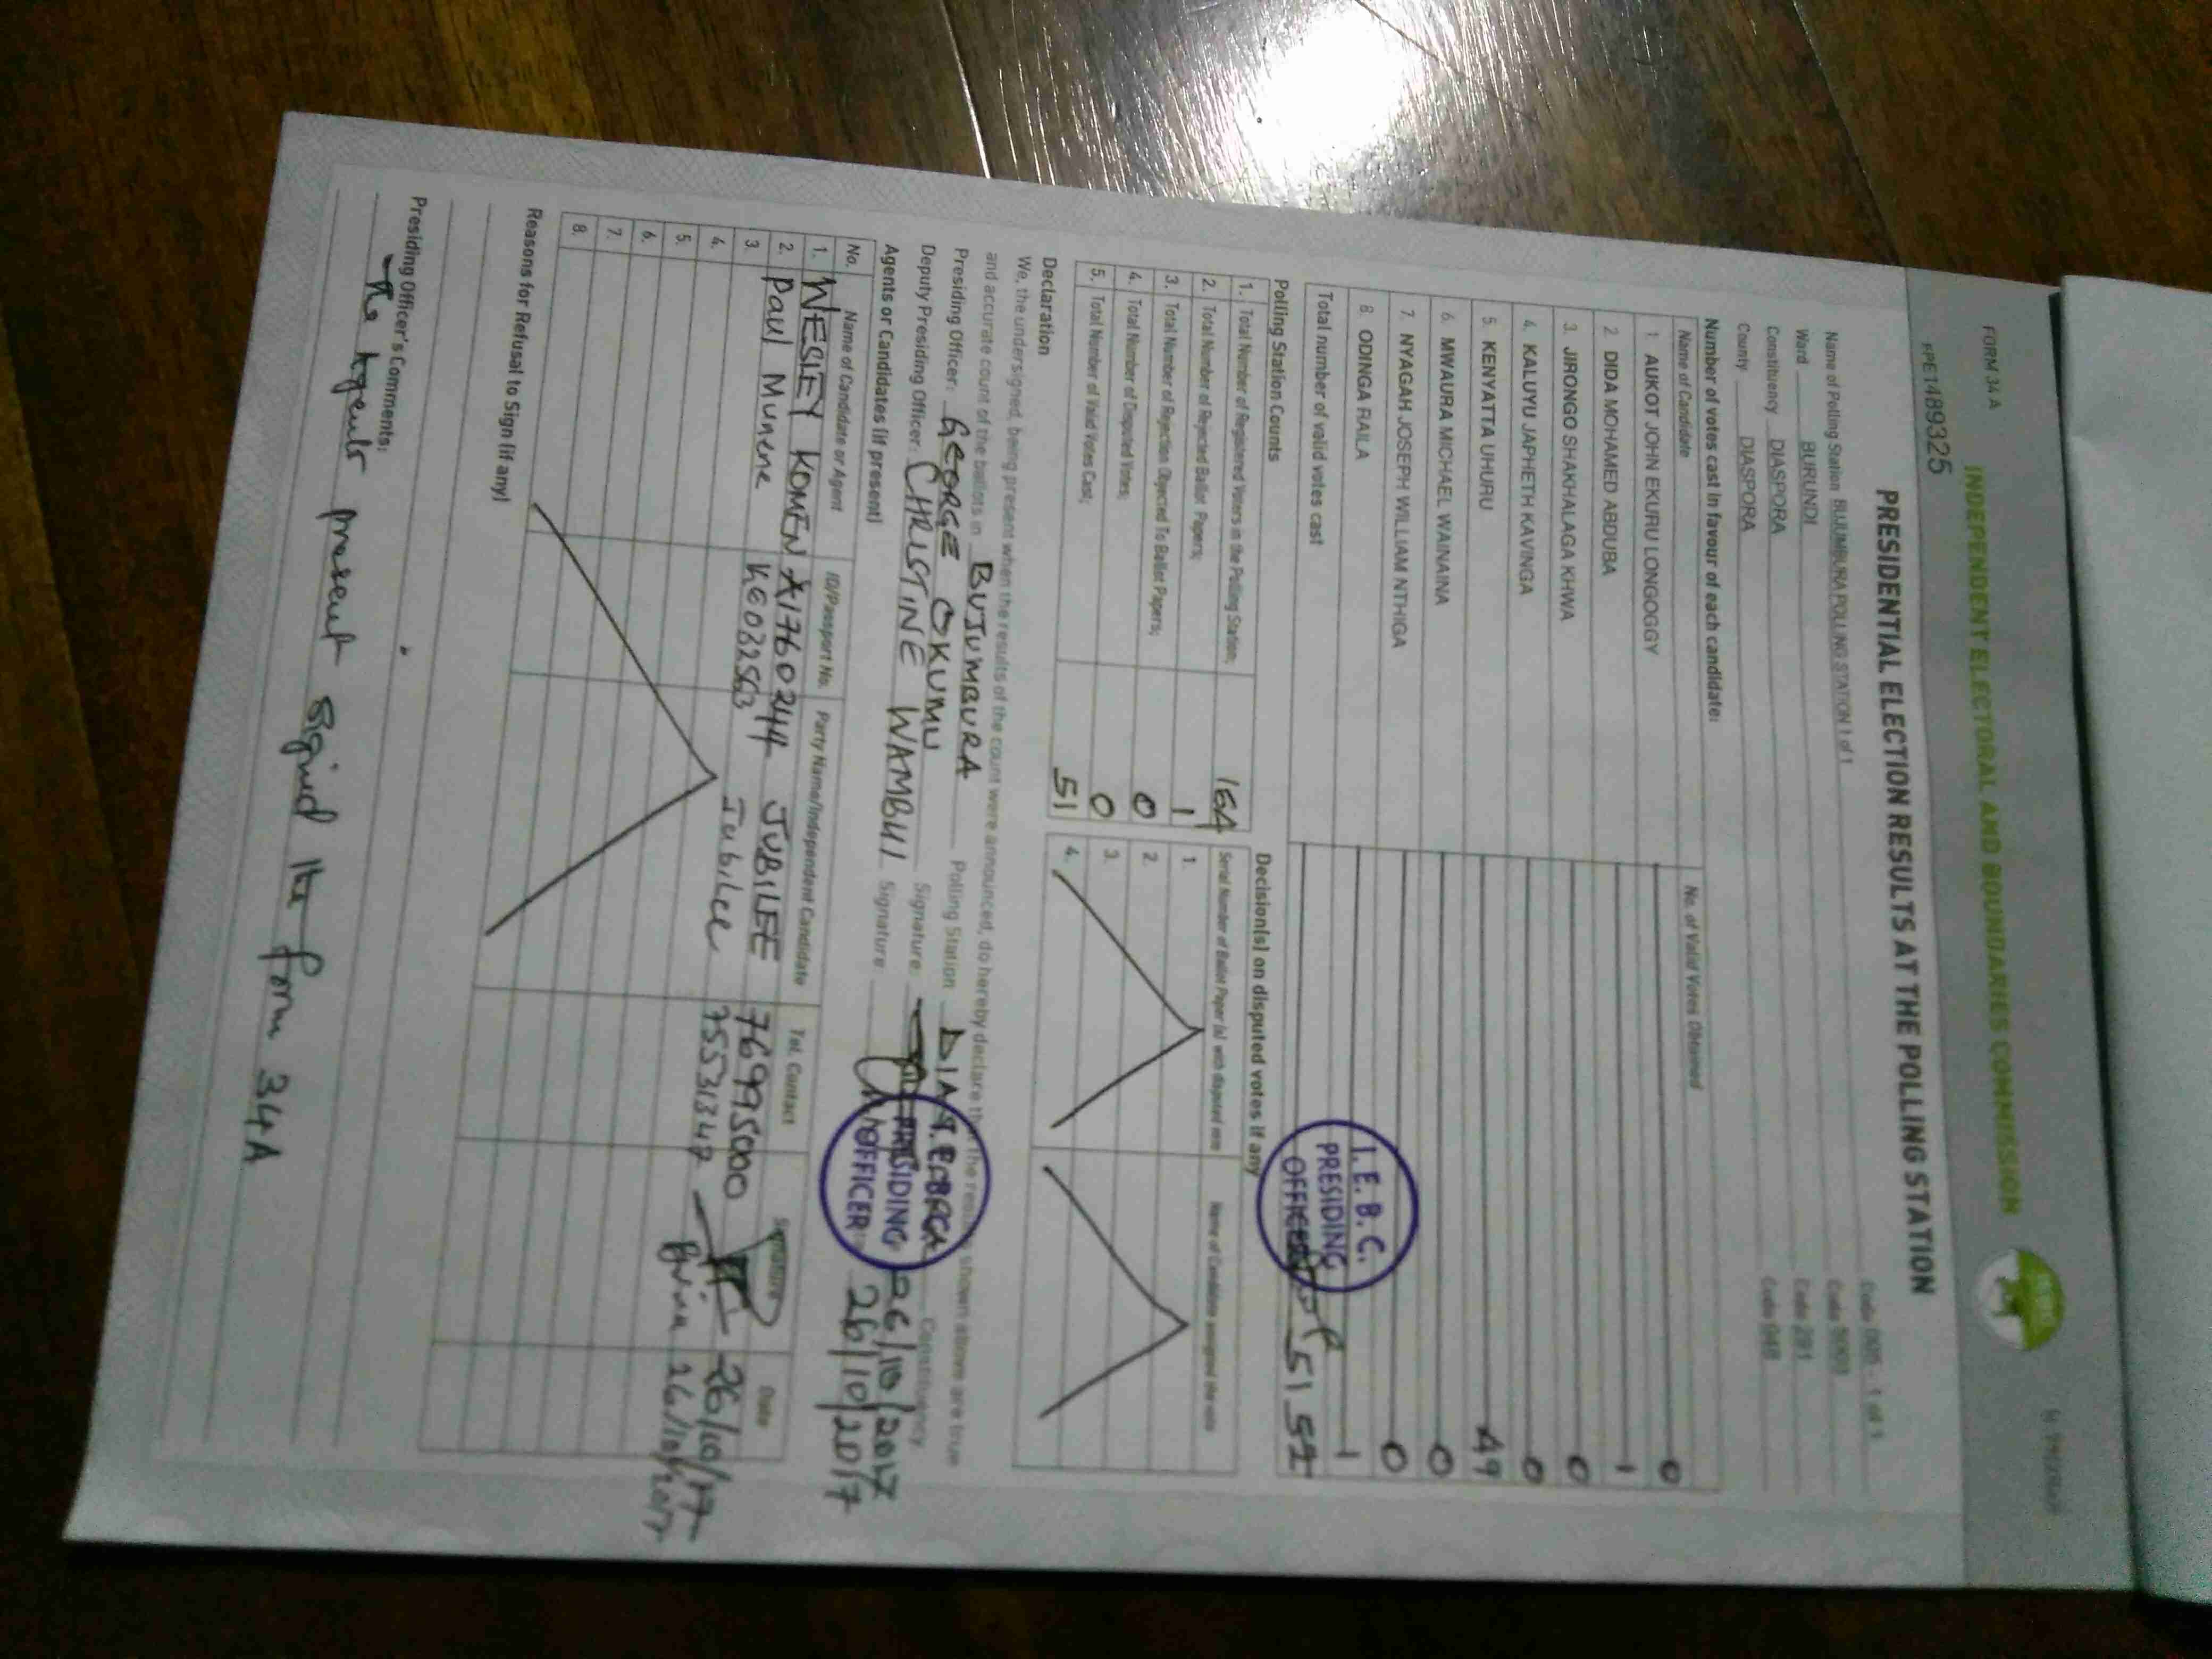 FORM 34 A
INDEPENDENT ELECTORAL AND BOUNDARIES COMMISSION
PRE1489325
PRESIDENTIAL ELECTION RESULTS AT THE POLLING STATION
Name of Polling Station BUJUMBURA POLLING STATION 1 of 1 Code 005 - 1 of 1
Ward BURUNDI
Constituency DIASPORA Code 291
County DIASPORA Code 048
Number of votes cast in favour of each candidate:
Name of Candidate No. of Valid Votes Obtained
1 AUKOT JOHN EKURU LONGOGGY 0
2 DIDA MOHAMED ABDUBA 1
3. JIRONGO SHAKHALAGA KHWA 0
4. KALUYU JAPHETH KAVINGA 0
5. KENYATTA UHURU 49
6. MWAURA MICHAEL WAINAINA 0
7. NYAGAH JOSEPH WILLIAM NTHIGA 0
8. ODINGA RAILA 1
Total number of valid votes cast 51 52
I.E.B.C.
PRESIDING
OFFICER
Polling Station Counts
1. Total Number of Registered Voters in the Polling Station; 164
2. Total Number of Rejected Ballot Papers; 1
3. Total Number of Rejection Objected To Ballot Papers; 0
4. Total Number of Disputed Votes; 0
5. Total Number of Valid Votes Cast; 51
Decision(s) on disputed votes if any
Serial Number of Ballot Paper (s) with disputed vote Name of Candidate assigned the vote
1.
2.
3.
4.
Declaration
We, the undersigned, being present when the results of the count were announced, do hereby declare that the results shown above are true
and accurate count of the ballots in BUJUMBURA Polling Station DIASPORA Constituency
Presiding Officer: GEORGE OKUMU Signature: 26/10/2017
Deputy Presiding Officer: CHRISTINE WAMBUI Signature: 26/10/2017
I.E.B.C.
PRESIDING
OFFICER
Agents or Candidates (if present)
No. Name of Candidate or Agent ID/Passport No. Party Name/Independent Candidate Tel. Contact Signature Date
1. WESLEY KOMEN A1760244 JUBILEE 76995000 26/10/17
2. Paul Munene K6032563 Jubilee 75531347 26/10/2017
3.
4.
5.
6.
7.
8.
Reasons for Refusal to Sign (if any)
Presiding Officer's Comments:
The Agents present signed the form 34A